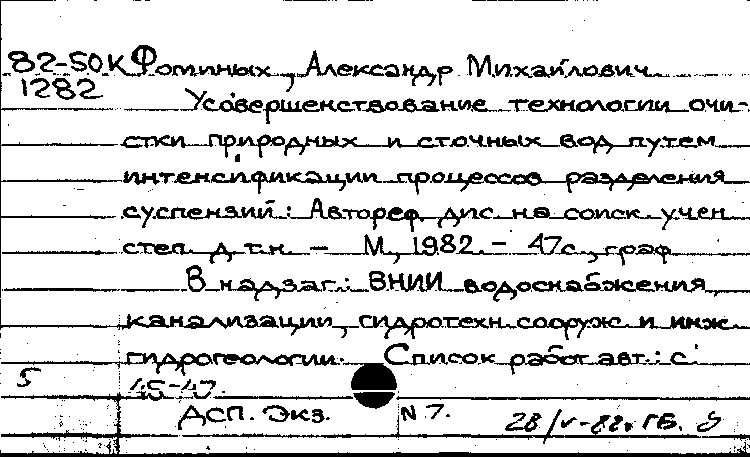 82-50К Фоминых, Александр Михайлович
1282
Усовершенствование технологии очи-
стки природных и сточных вод путем
интенсификации процессов разделения
суспензий: Автореф. дис. на соиск. учен.
степ. д.т.н. — М., 1982. — 47с., граф
В надзаг.: ВНИИ водоснабжения,
канализации, гидротехн. сооруж. и инж.
гидрогеологии. Список работ авт.: с.
5 45-47.
ДСП. Экз. N 7. 28/V-82г ГБ.